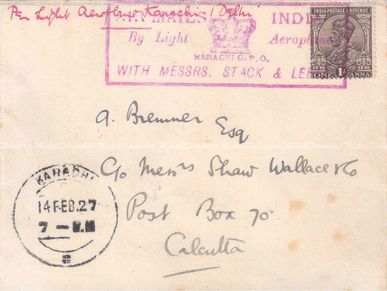 Per Light Aeroplane Karachi / Delhi
INDIA
By Light Aeroplane
KARACHI G.P.O.
WITH MESSRS. STACK & LE
INDIA POSTAGE & REVENUE
ONE 1 ANNA
A Bremner Esq
C/o Messrs Shaw Wallace & Co
Post Box 70
Calcutta
KARACHI
14 FEB. 27
7 - M.N